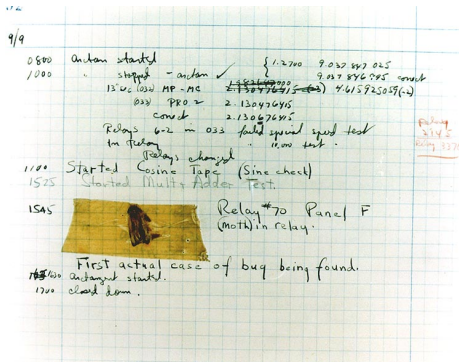 9/9
0800 antan started
1000 " stopped - antan ✓ { 1.2700 9.037 847 025
9.037 846 995 correct
13"uc (032) MP-MC 2.130476415 (-3) 4.615925059(-2)
(033) PRO 2 2.130476415
correct 2.130676415
Relays 6-2 in 033 failed special speed test
in relay " 10.000 test.
Relays changed
Relay
2145
Relay 3370
1100 Started Cosine Tape (Sine check)
1525 Started Mult+Adder Test.
1545 Relay #70 Panel F
(Moth) in relay.
First actual case of bug being found.
1630 antangent started.
1700 closed down.